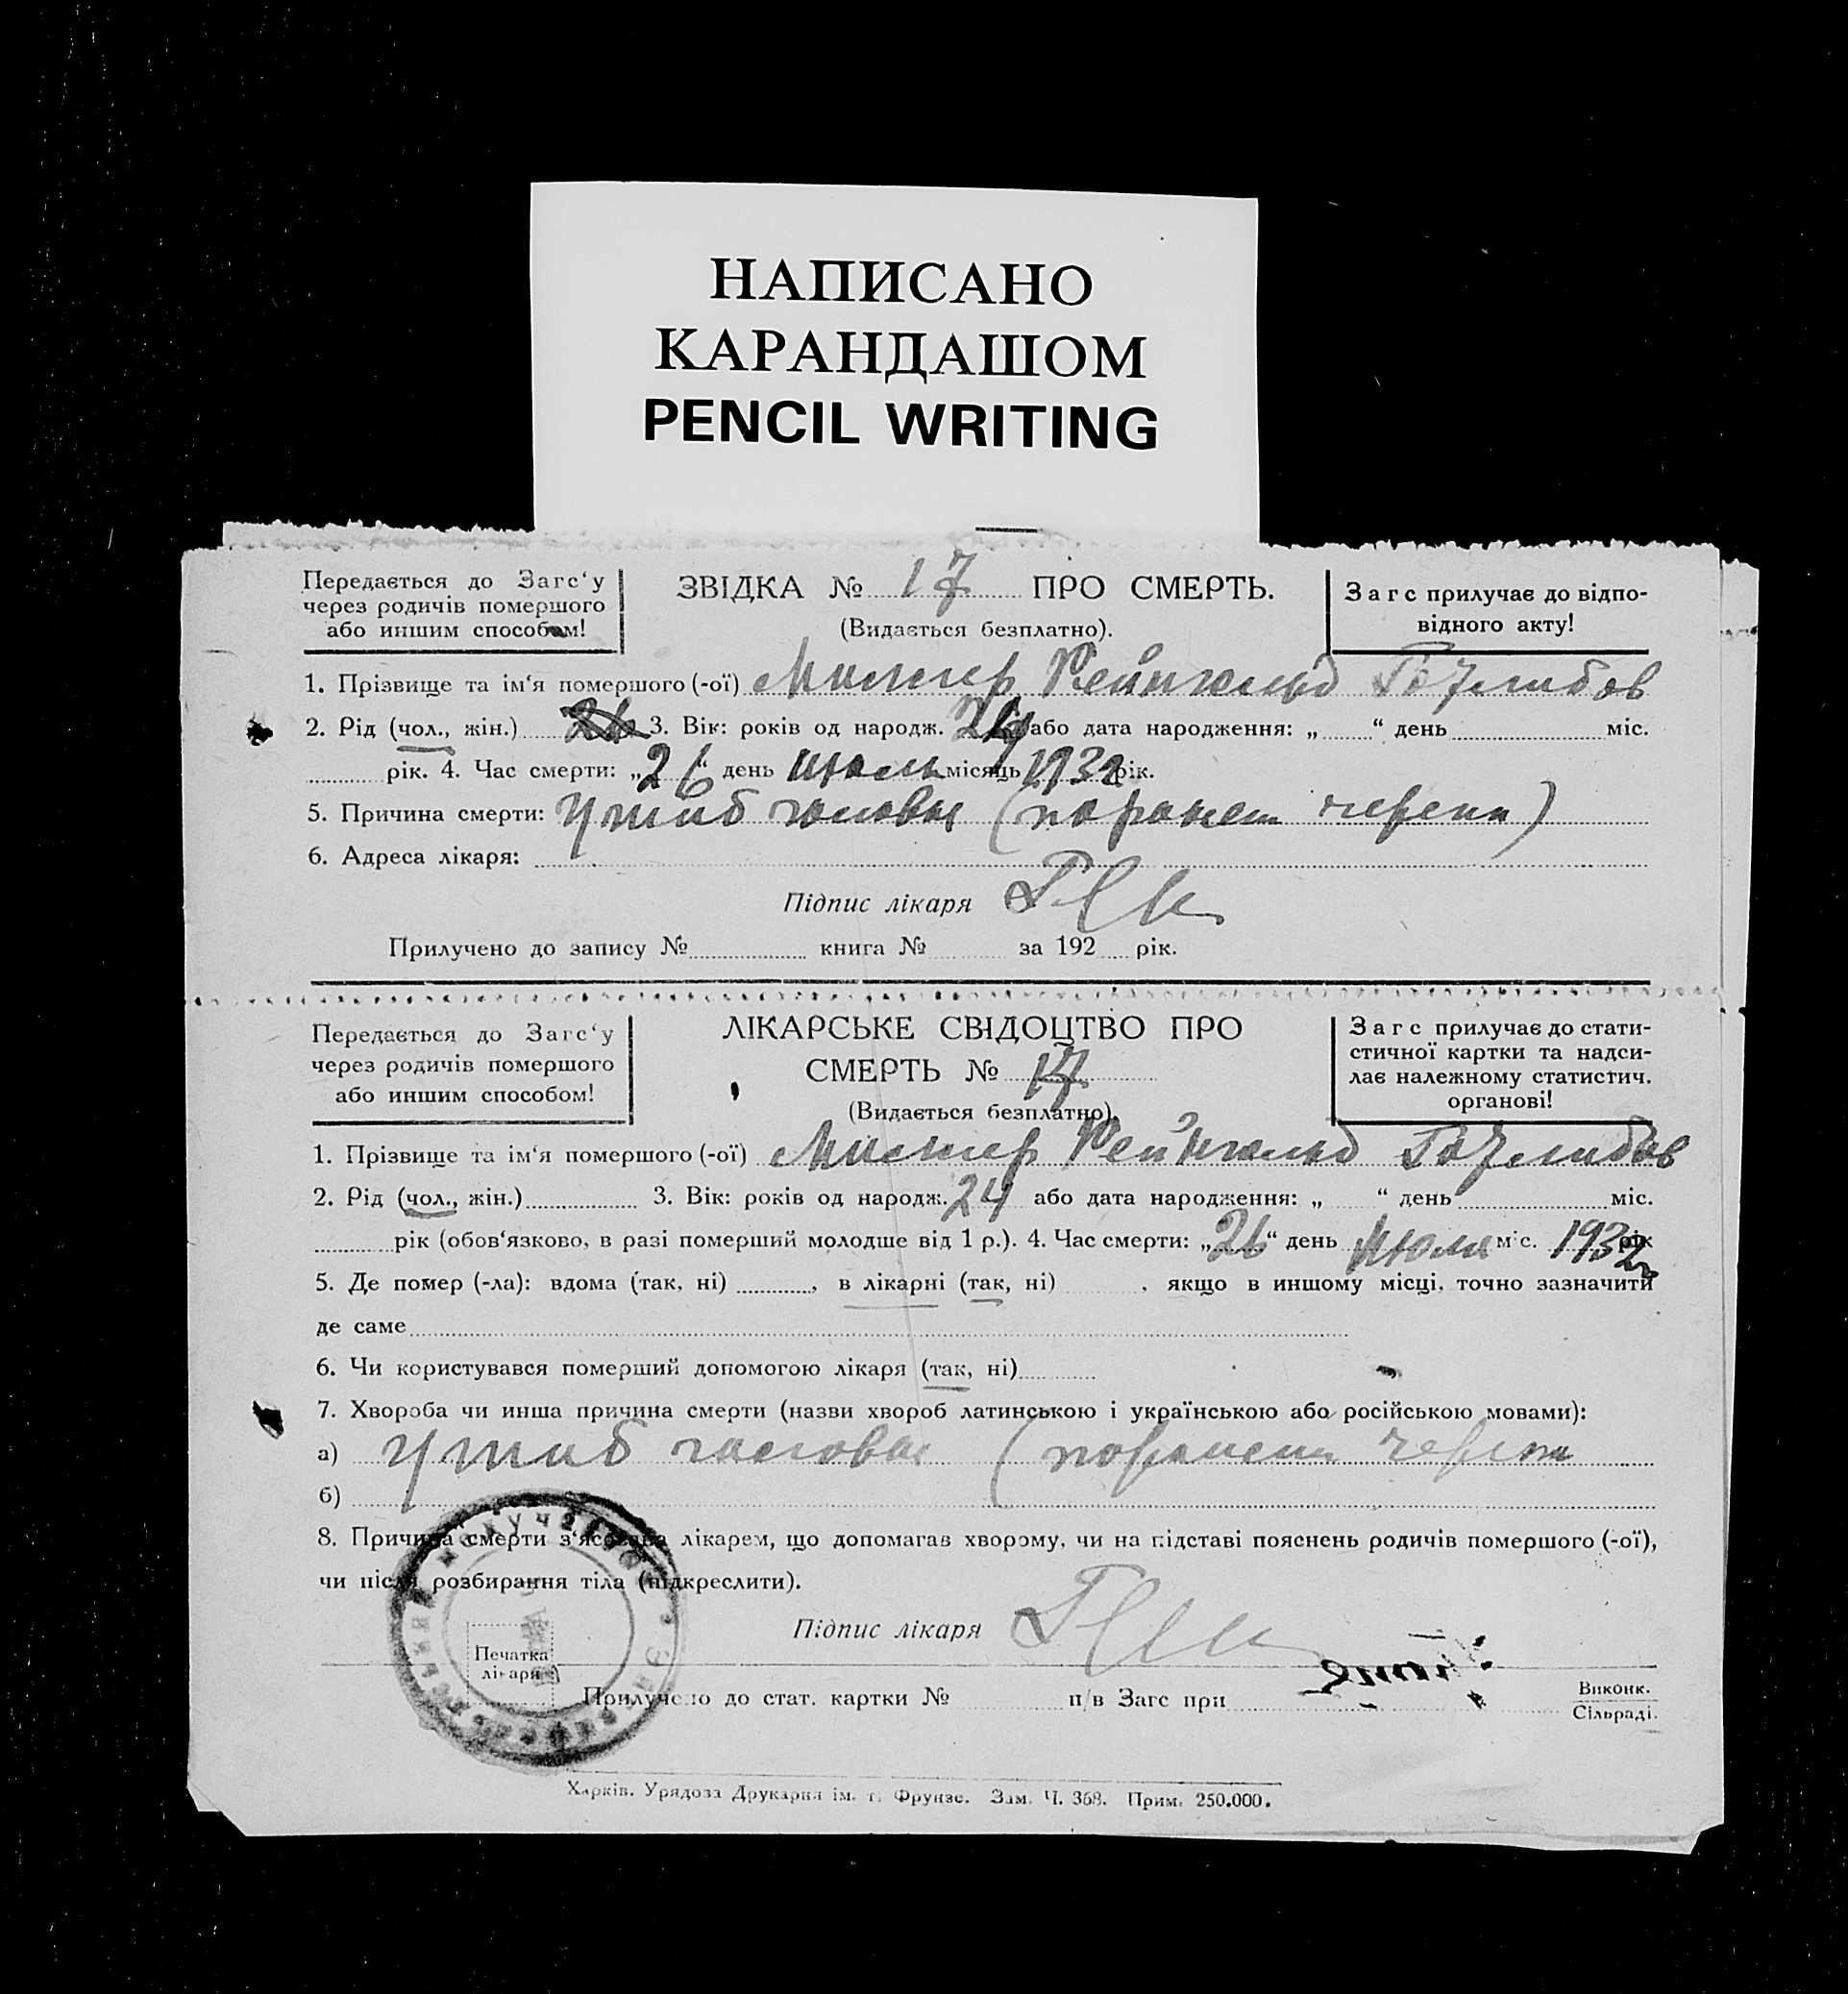 НАПИСАНО
КАРАНДАШОМ
PENCIL WRITING
Передається до Загс‘у
через родичів помершого
або иншим способом!
ЗВІДКА № 17 ПРО СМЕРТЬ.
(Видається безплатно).
Загс прилучає до відпо-
відного акту!
1. Прізвище та ім‘я помершого (-ої) Миллер Рейнгольд Готлибов
2. Рід (чол., жін.) 3. Вік: років од народж. 24 або дата народження: „ “ день міс.
рік. 4. Час смерти: „26“ день июль місяць 1932 рік.
5. Причина смерти: Ушиб головы (поранен черепа)
6. Адреса лікаря:
Підпис лікаря
Прилучено до запису № книга № за 192 рік.
Передається до Загс‘у
через родичів помершого
або иншим способом!
ЛІКАРСЬКЕ СВІДОЦТВО ПРО
СМЕРТЬ № 17
(Видається безплатно).
Загс прилучає до стати-
стичної картки та надси-
лає належному статистич.
органові!
1. Прізвище та ім‘я помершого (-ої) Миллер Рейнгольд Готлибов
2. Рід (чол., жін.) 3. Вік: років од народж. 24 або дата народження: „ “ день міс.
рік (обов‘язково, в разі померший молодше від 1 р.). 4. Час смерти: „26“ день Июля міс. 1932 рік
5. Де помер (-ла): вдома (так, ні) , в лікарні (так, ні) , якщо в иншому місці, точно зазначити
де саме
6. Чи користувався померший допомогою лікаря (так, ні)
7. Хвороба чи инша причина смерти (назви хвороб латинською і українською або російською мовами):
а) Ушиб головы (поранен череп
б)
8. Причина смерти з‘ясована лікарем, що допомагав хворому, чи на підставі пояснень родичів помершого (-ої),
чи після розбирання тіла (підкреслити).
Підпис лікаря
Печатка
лікаря
Прилучено до стат. картки № п/в Загс при
Виконк.
Сільраді.
Харків. Урядова Друкарня ім. т. Фрунзе. Зам. Ч. 368. Прим. 250.000.